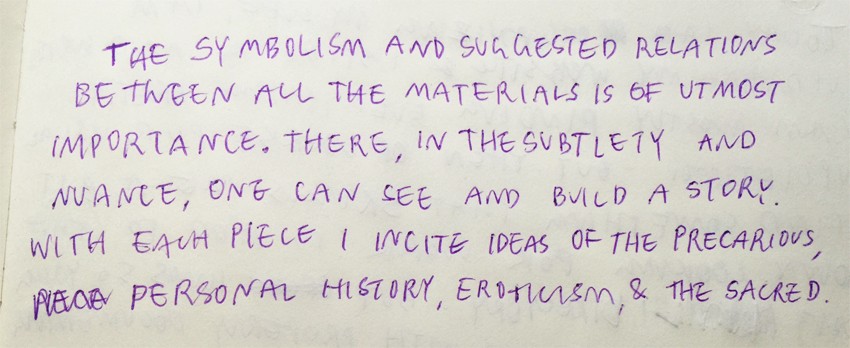 THE SYMBOLISM AND SUGGESTED RELATIONS
BETWEEN ALL THE MATERIALS IS OF UTMOST
IMPORTANCE. THERE, IN THE SUBTLETY AND
NUANCE, ONE CAN SEE AND BUILD A STORY.
WITH EACH PIECE I INCITE IDEAS OF THE PRECARIOUS,
PERSONAL HISTORY, EROTICISM, & THE SACRED.